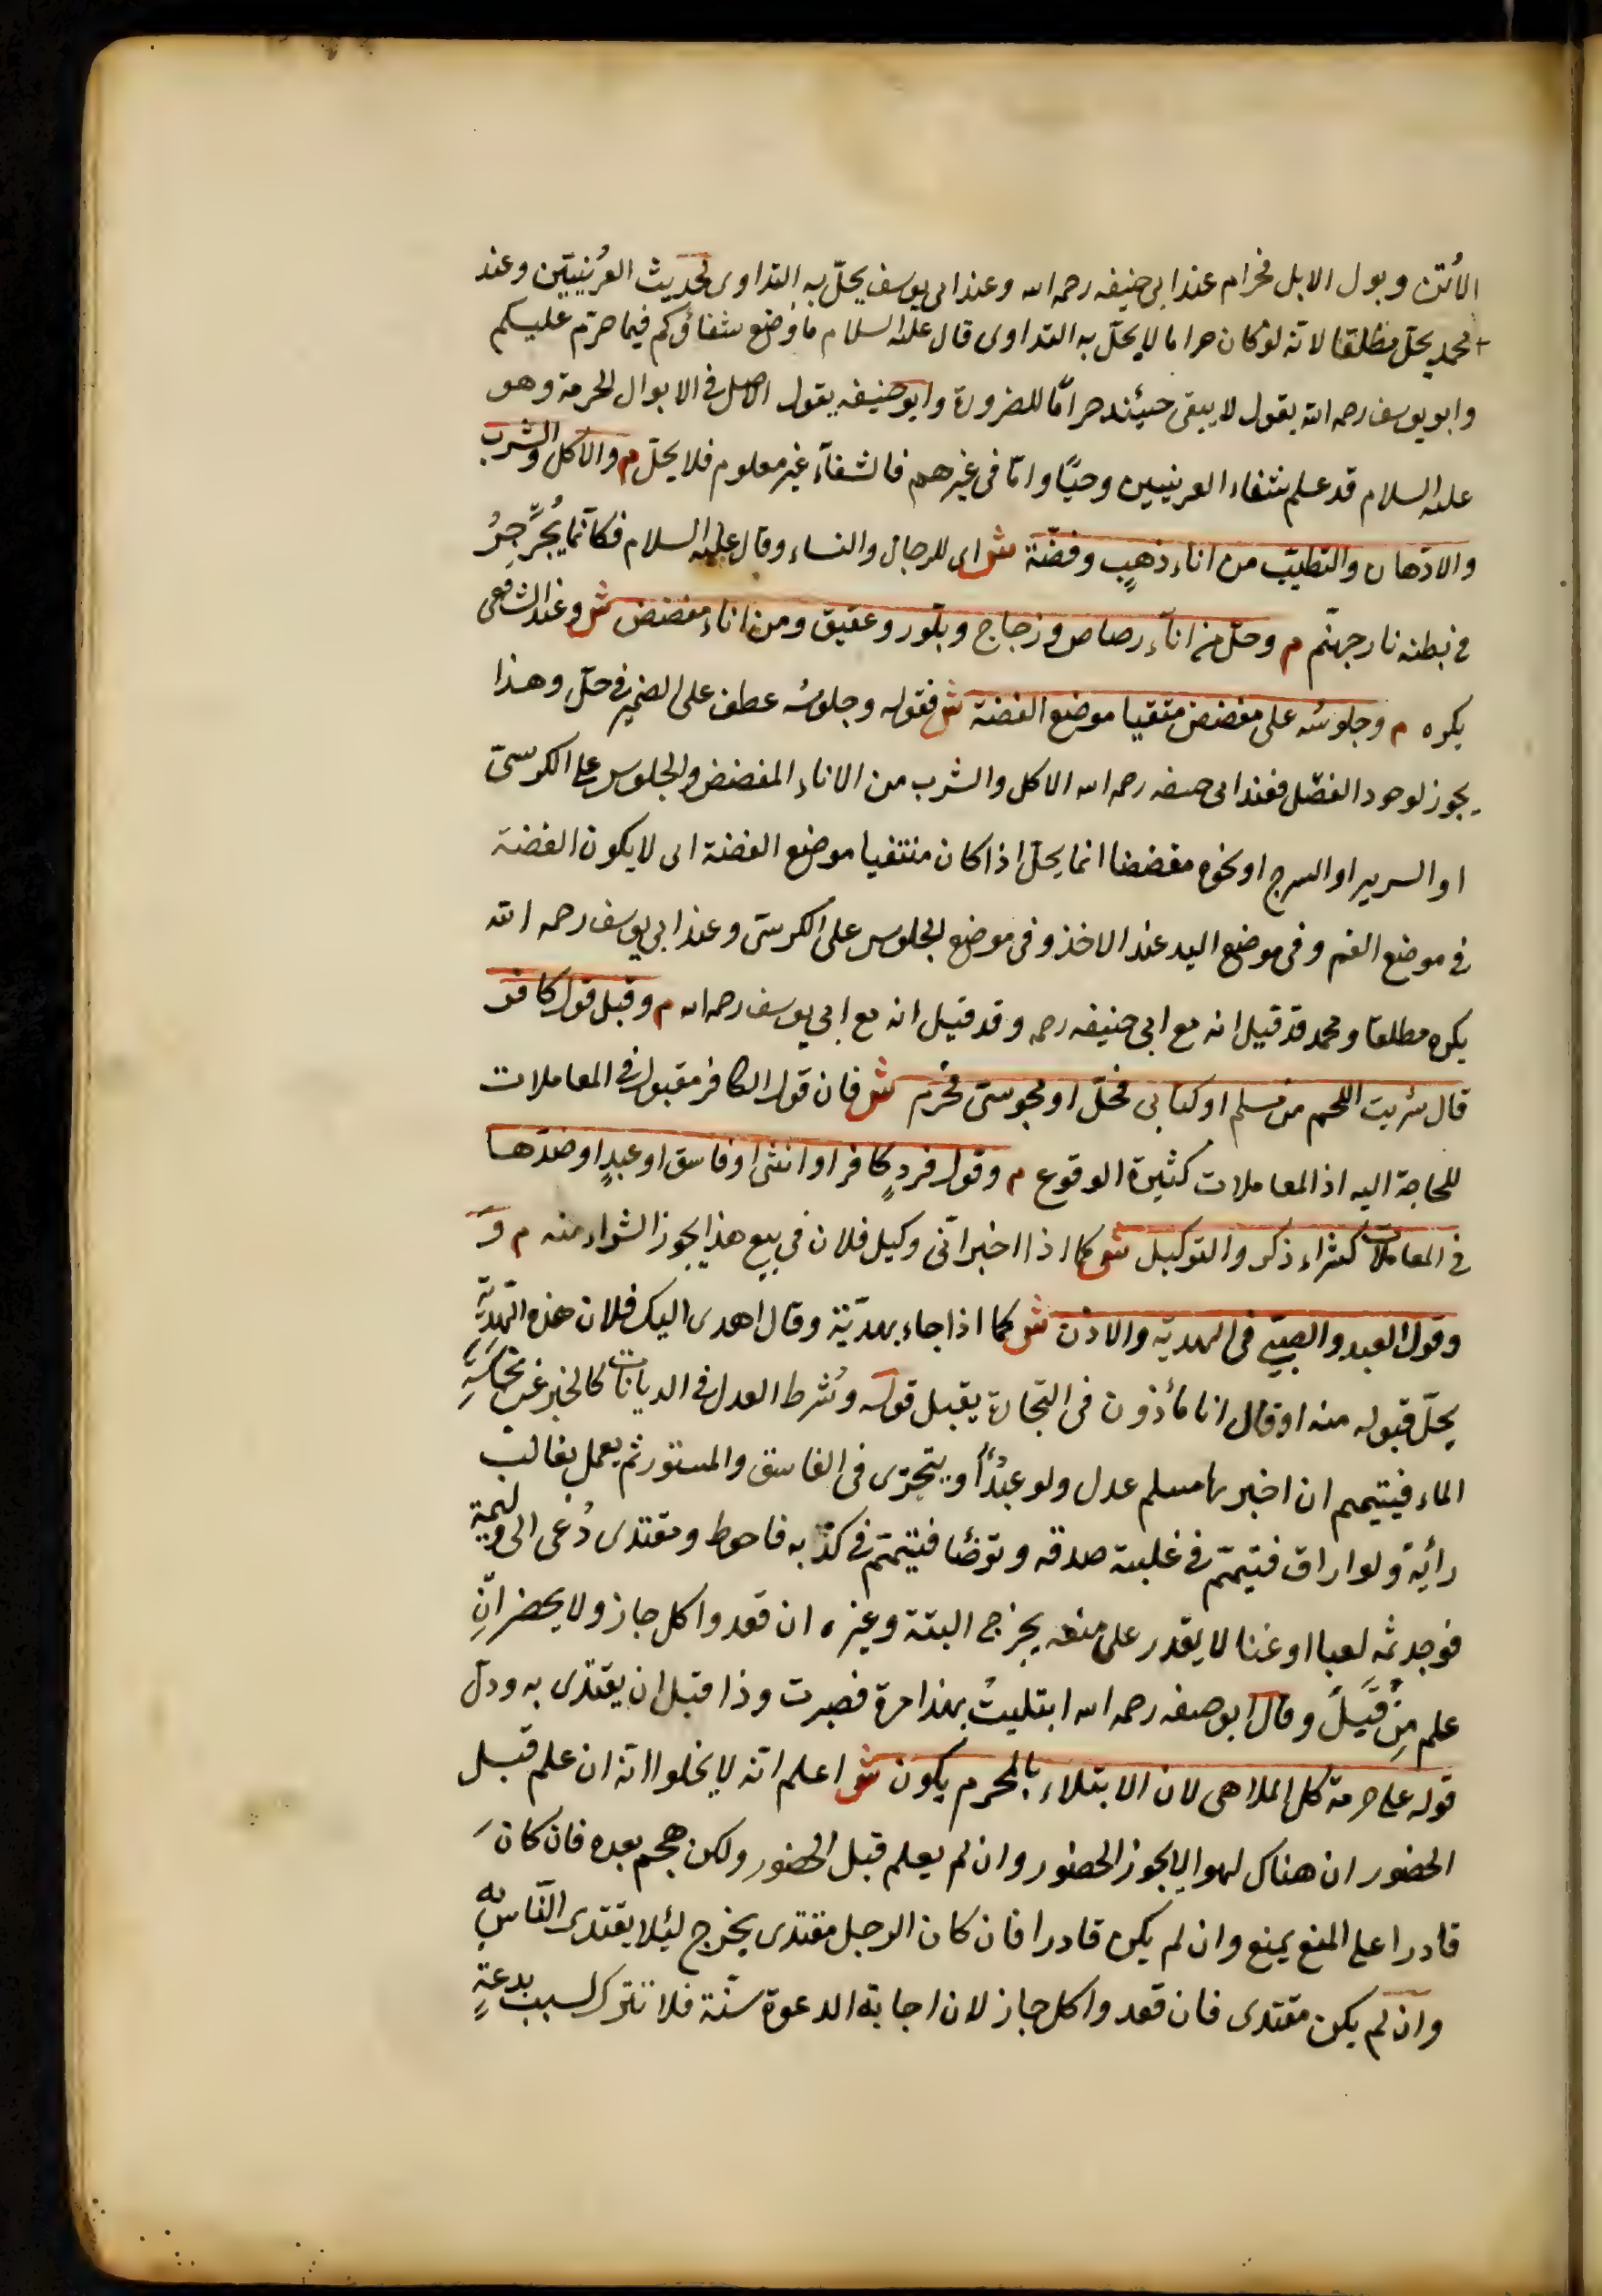 الأتن وبول الابل فحرام عند ابي حنيفه رحمه الله وعند ابي يوسف يحلّ به التداوى لحديث العُرَنيّين وعند
محمد يحلّ مطلقا لانّه لو كان حراما لا يحلّ به التداوى قال عليه السلام ما وُضع شفاؤكم فيما حرّم عليكم
وابو يوسف رحمه الله يقول لا يبقى حينئذ حرامًا للضرورة وابو حنيفه يقول الاصل فى الابوال الحرمة وهو
عليه السلام قد علم شفاء العرنيين وحيًا وامّا فى غيرهم فالشفآء غير معلوم فلا يحلّ م والاكل والشرب
والادّهان والتطيّب من اناء ذهبٍ وفضّة ش اى للرجال والنساء وقال عليه السلام فكأنما يُجَرْجِرُ
فى بطنه نار جهنّم م وحلّ من اناء رصاص وزجاج وبلّور وعقيق ومن اناء مفضض ش وعند الشافعى
يكره م وجلوسُه على مفضض متقيا موضع الفضة ش فقوله وجلوسُه عطف على الضمير فى حلّ وهذا
يجوز لوجود الفصل فعند ابى حنيفه رحمه الله الاكل والشرب من الاناء المفضض والجلوس على الكرسىّ
او السرير او السرج او نحوه مفضضا انما يحلّ اذا كان متقيا موضع الفضة اى لا يكون الفضة
فى موضع الفم وفى موضع اليد عند الاخذ وفى موضع الجلوس على الكرسىّ وعند ابي يوسف رحمه الله
يكره مطلقا ومحمد قد قيل انه مع ابى حنيفه رحمه وقد قيل انه مع ابى يوسف رحمه الله م وقبل قول كافر
قال شريت اللحم من مسلم او كتابى فحلّ او مجوسىّ فحرّم ش فان قول الكافر مقبول فى المعاملات
للحاجة اليه اذ المعاملات كثيرة الوقوع م وقول فردٍ كافر او انثى او فاسق او عبدٍ او ضدّها
فى المعاملات كشراء ذكر والتوكيل ش كما اذا اخبر انّى وكيل فلان فى بيع هذا يجوز الشراء منه م وَ
وقول العبد والصبىّ فى الهديّة والاذن ش كما اذا جاء بهديّة وقال اهدى اليك فلان هذه الهديّة
يحلّ قبوله منه او قال انا مأذون فى التجارة يقبل قوله وشُرط العدل فى الديانات كالخبر عن نجاسَةِ
الماء فيتيمم ان اخبر بها مسلم عدل ولو عبدًا ويتحرّى فى الفاسق والمستور ثم يعمل بغالب
رأيه ولو اراق فتيمّم فى غلبة صدقه وتوضّا فتيمّم فى كذبه فاحوط ومقتدى دُعى الى وليمة
فوجد ثمّه لعبا او غنا لا يقدر على منعه يخرج البتة وغيره ان قعد واكل جاز ولا يحضر انِ
علم مِن قبلُ وقال ابو حنيفه رحمه الله ابتليتُ بهذا مرة فصبرت وذا قبل ان يقتدى به ودلّ
قوله على حرمة كل الملاهى لان الابتلاء بالمحرم يكون ش اعلم انّه لا يخلوا انّه ان علم قبل
الحضور ان هناك لهوا لا يجوز الحضور وان لم يعلم قبل الحضور ولكن هجم بعده فان كانَ
قادرا على المنع يمنع وان لم يكن قادرا فان كان الرجل مقتدى يخرج ليئلا يقتدى النّاس به
وان لم يكن مقتدى فان قعد واكل جاز لان اجابة الدعوة سنّة فلا تترك لسبب بدعةٍ